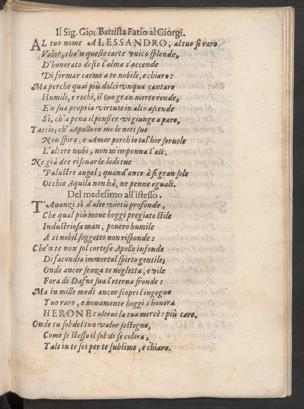 Il Sig. Gio. Battista Fatio al Giorgi.
AL tuo nome ALESSANDRO, al tuo sì raro
Valor, ch'n queste carte vnico splende,
D'honorato desio l'alma s'accende
Di formar carme a te nobile, e chiaro:
Ma perche quai più dolci vnqua cantaro
Humili, e rochi, il tuo gran merto rende,
En sua propria virtute in alto ascende
Sì, ch'a pena il pensier vi giunge a paro,
Taccio; ch' Apollo in me le noti sue
Non spira; e Amor perch'io tal'hor soruole
L'altre nubi, non m'impenna l'ali.
Ne già dee risonar le lodi tue
Palustre augel; quand'anco à sì gran sole
Occhio Aquila non hà, ne penne eguali.
Del medesimo all'istesso.
T'Auanzi sì d'alte virtù profonde,
Che qual più moue hoggi pregiato stile
Industriosa man, pouero humile
A sì nobil soggetto non risponde:
Ch'n te non sol cortese Apollo infonde
Di facondia immortal spirto gentile;
Onde ancor senza te negletta, e vile
Fora di Dafne sua l'eterna fronde:
Ma in mille modi ancor scopri l'ingegno
Tuo raro, e nouamente hoggi s'honora
HERONE: altrui la tua mercè: più caro.
Onde tu sol del tuo valor sostegno,
Come se stesso il sol di se colora,
Tale in te sei per te sublime, e chiaro.